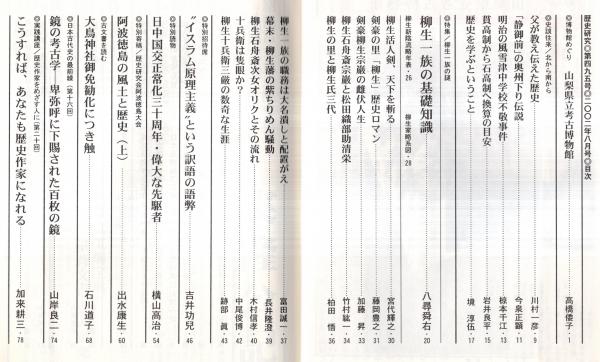 歴史研究◎第四九五号◎二〇〇二年八月号◎目次
◎博物館めぐり 山梨県立考古博物館 髙橋倭子・1
◎史談往来／北から南から
父が教え伝えた歴史 川村一彦・9
「静御前」の奥州下り伝説 今泉正顕・11
明治の風雪津中学校不敬事件 椋本千江・13
貫高制から石高制へ換算の目安 岩井良平・15
歴史を学ぶということ 境 淳伍・17
◎特集／柳生一族の謎
柳生一族の基礎知識 八尋舜右・20
柳生新陰流略年表・26 柳生家略系図・28
柳生活人剣、天下を斬る 宮代輝之・30
剣豪の里「柳生」歴史ロマン 藤岡豊之・31
剣豪柳生宗厳の雌伏人生 加藤 昇・33
柳生石舟斎宗厳と松田織部助清栄 竹村紘一・34
柳生の里と柳生氏三代 柏田 悟・36
柳生一族の職務は大名潰しと配置がえ 富田誠一・37
幕末・柳生藩の紫ちりめん騒動 長井隆澄・39
柳生石舟斎次女オリクとその流れ 木村信孝・40
十兵衛は隻眼か？ 中尾俊博・42
柳生十兵衛三厳の数奇な生涯 跡部 眞・43
◎特別招待席
“イスラム原理主義”という訳語の語弊 吉井功兒・46
◎特別読物
日中国交正常化三十周年・偉大な先駆者 横山高治・54
◎特別寄稿／歴史研究会阿波徳島大会
阿波徳島の風土と歴史（上） 出水康生・60
◎古文書を読む
大鳥神社御免勧化につき触 石川道子・68
◎日本古代史の最前線（第十六回）
鏡の考古学 卑弥呼に下賜された百枚の鏡 山岸良二・74
◎実践講座／歴史作家をめざす人に（第二十回）
こうすれば、あなたも歴史作家になれる 加来耕三・78